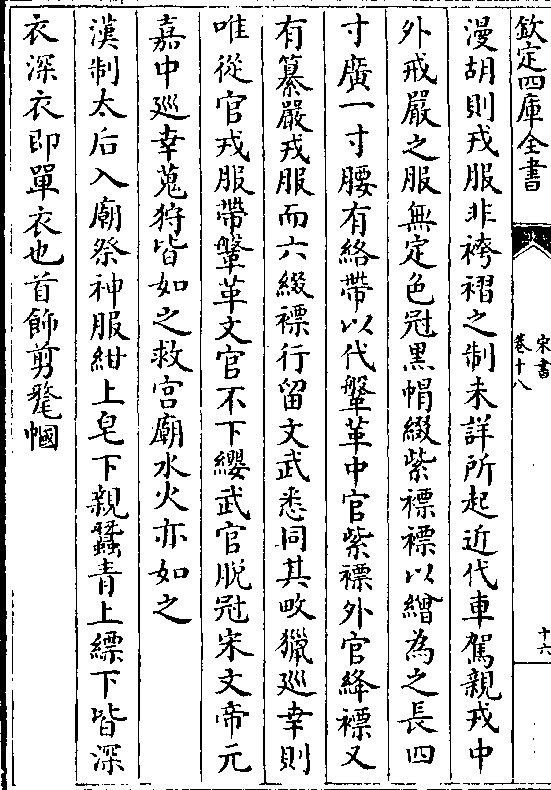 欽定四庫全書
宋書
卷十八
十六
漫胡則戎服非袴褶之制未詳所起近代車駕親戎中
外戒嚴之服無定色冠黑帽綴紫褾褾以繒為之長四
寸廣一寸腰有絡帶以代鞶革中官紫褾外官絳褾又
有纂嚴戎服而不綴褾行留文武悉同其畋獵巡幸則
唯從官戎服帶鞶革文官不下纓武官脫冠宋文帝元
嘉中巡幸蒐狩皆如之救宮廟水火亦如之
漢制太后入廟祭神服紺上皂下親蠶青上縹下皆深
衣深衣即單衣也首飾剪氂幗